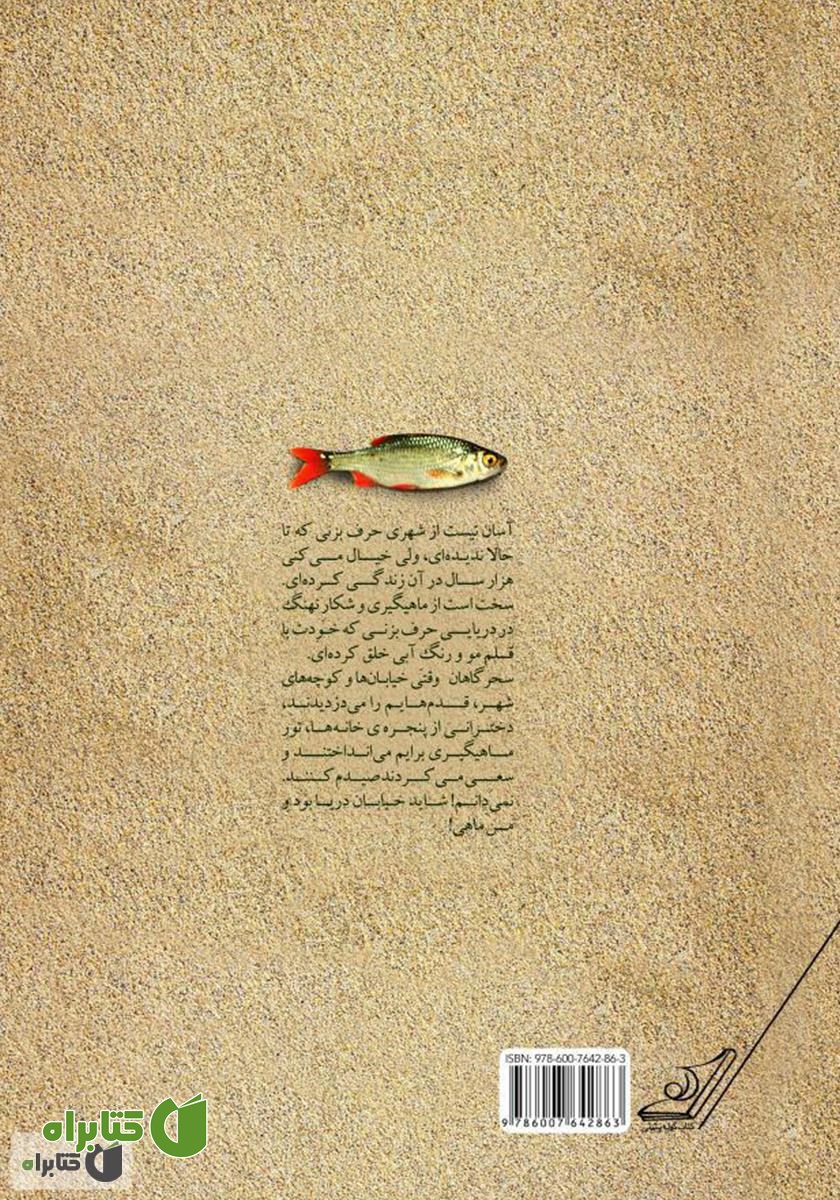 آسان نیست از شهری حرف بزنی که تا
حالا ندیده‌ای، ولی خیال می‌کنی
هزار سال در آن زندگی کرده‌ای.
سخت است از ماهیگیری و شکار نهنگ
در دریایی حرف بزنی که خودت با
قلم مو و رنگ آبی خلق کرده‌ای.
سحرگاهان وقتی خیابان‌ها و کوچه‌های
شهر، قدم‌هایم را می‌دزدیدند،
دخترانی از پنجره‌ ی خانه‌ها، تور
ماهیگیری برایم می‌انداختند و
سعی می‌کردند صیدم کنند.
نمی‌دانم! شاید خیابان دریا بود و
من ماهی!
ISBN: 978-600-7642-86-3
9 786007 642863
کتاب کوله پشتی
کتابراه
کتابراه